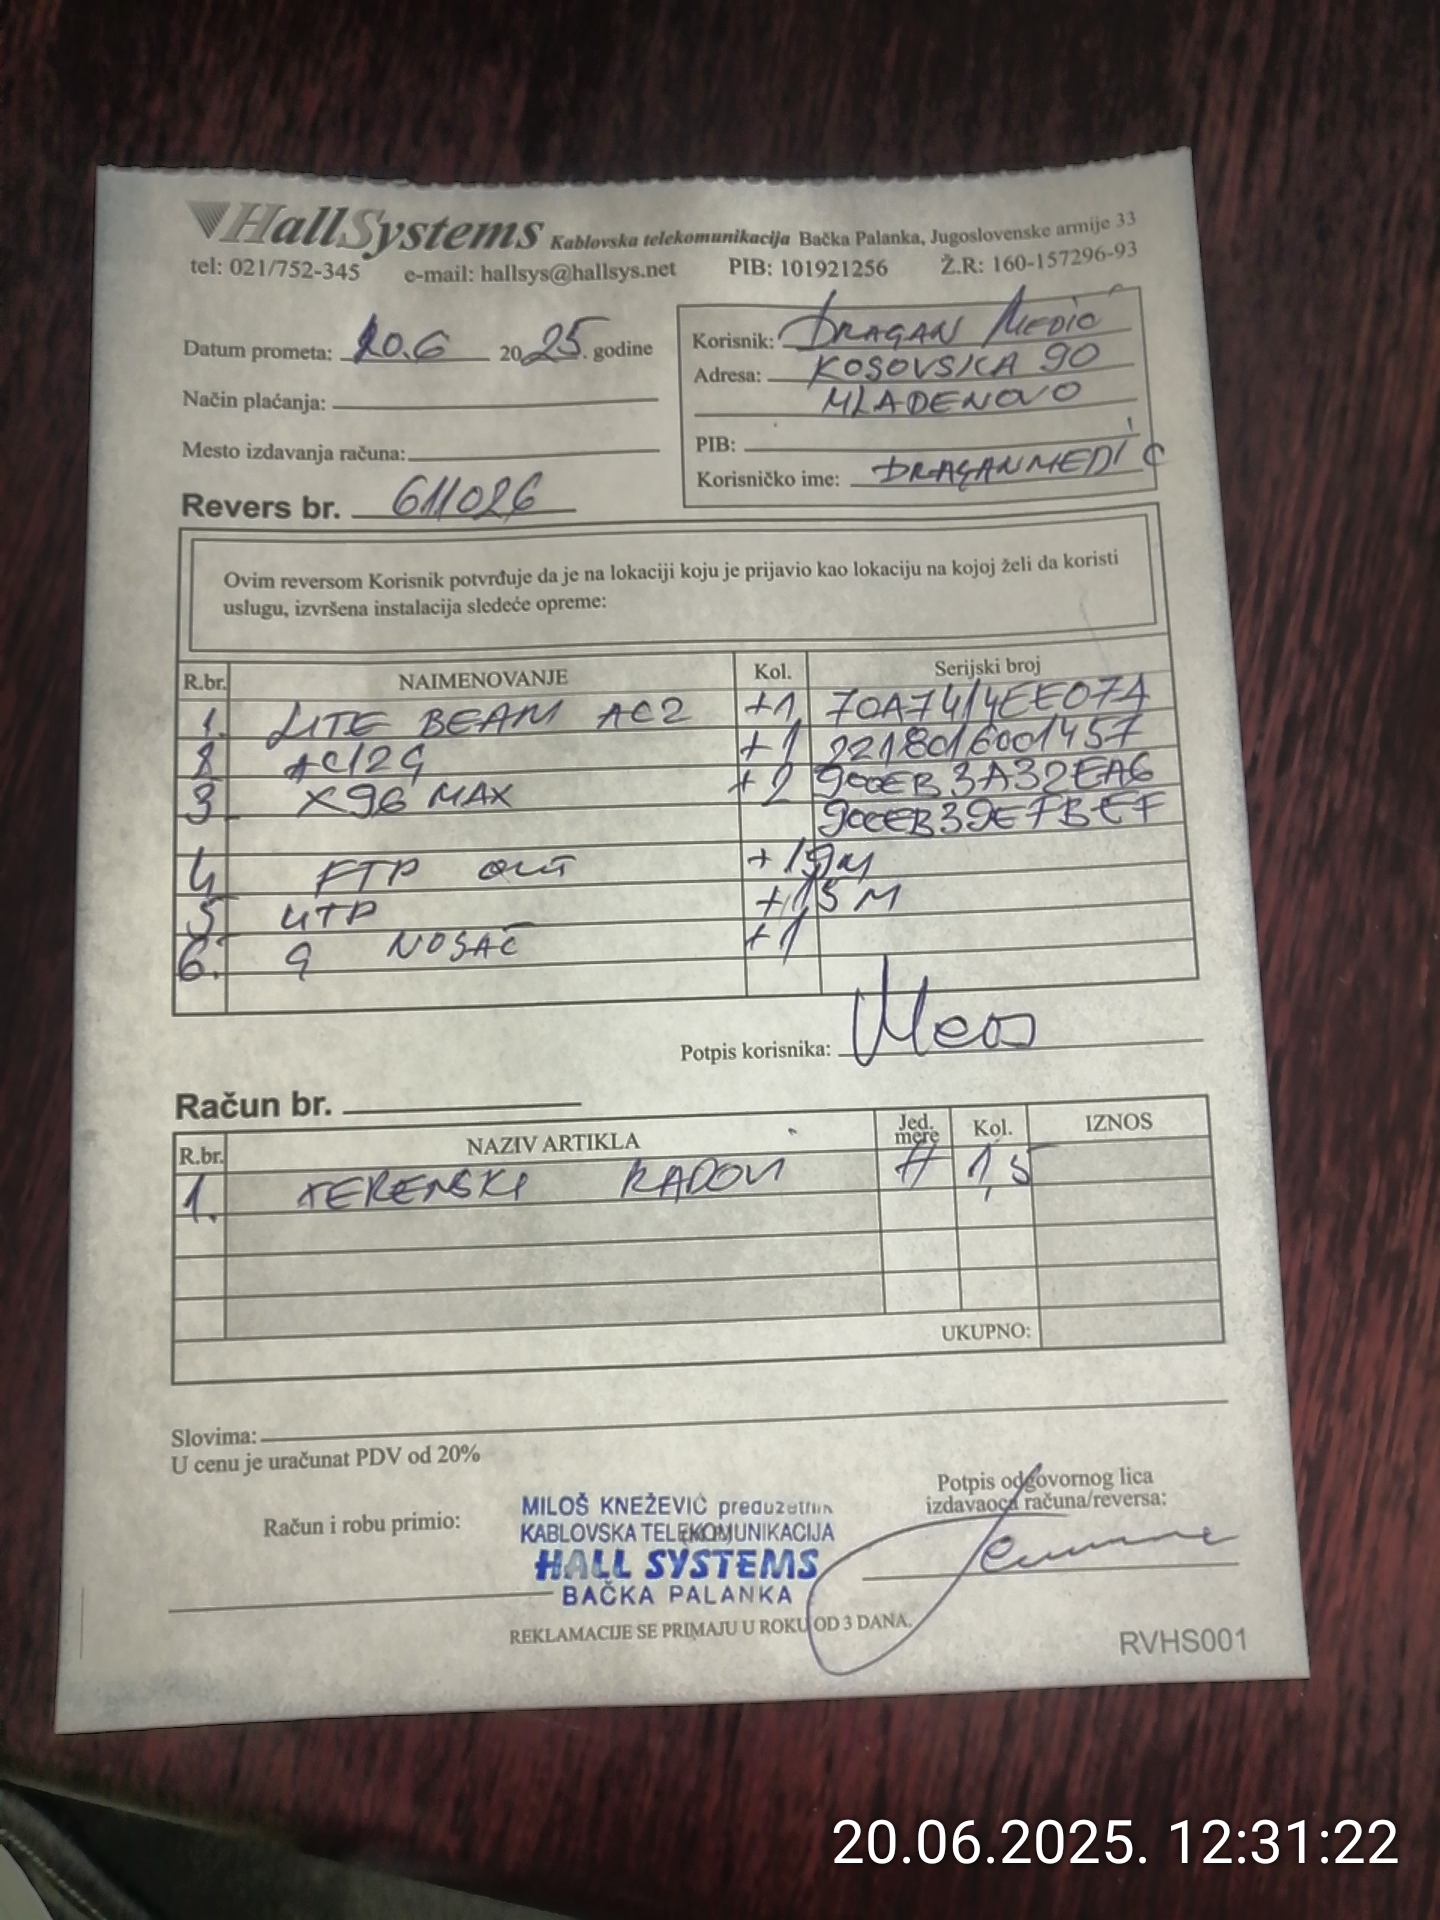 HallSystems Kablovska telekomunikacija Bačka Palanka, Jugoslovenske armije 33
tel: 021/752-345 e-mail: hallsys@hallsys.net PIB: 101921256 Ž.R: 160-157296-93
Datum prometa: 20.6 2025. godine
Način plaćanja:
Mesto izdavanja računa:
Revers br. 611026
Korisnik: DRAGAN MEDIĆ
Adresa: KOSOVSKA 90
MLADENOVO
PIB:
Korisničko ime: DRAGANMEDIĆ
Ovim reversom Korisnik potvrđuje da je na lokaciji koju je prijavio kao lokaciju na kojoj želi da koristi
uslugu, izvršena instalacija sledeće opreme:
R.br. NAIMENOVANJE Kol. Serijski broj
1. LITE BEAM AC2 +1 70A7414EE07A
2 AC12G +1 2218016001457
3 X96 MAX +2 900EEB3A32EA6
900EEB39E7BEF
4 FTP OUT +19M
5 UTP +15M
6. G NOSAČ +1
Potpis korisnika:
Račun br.
R.br. NAZIV ARTIKLA Jed. mere Kol. IZNOS
1. TERENSKI RADOVI H 1,5
UKUPNO:
Slovima:
U cenu je uračunat PDV od 20%
Račun i robu primio:
MILOŠ KNEŽEVIĆ preduzetnik
KABLOVSKA TELEKOMUNIKACIJA
HALL SYSTEMS
BAČKA PALANKA
Potpis odgovornog lica
izdavaoca računa/reversa:
REKLAMACIJE SE PRIMAJU U ROKU OD 3 DANA.
RVHS001
20.06.2025. 12:31:22